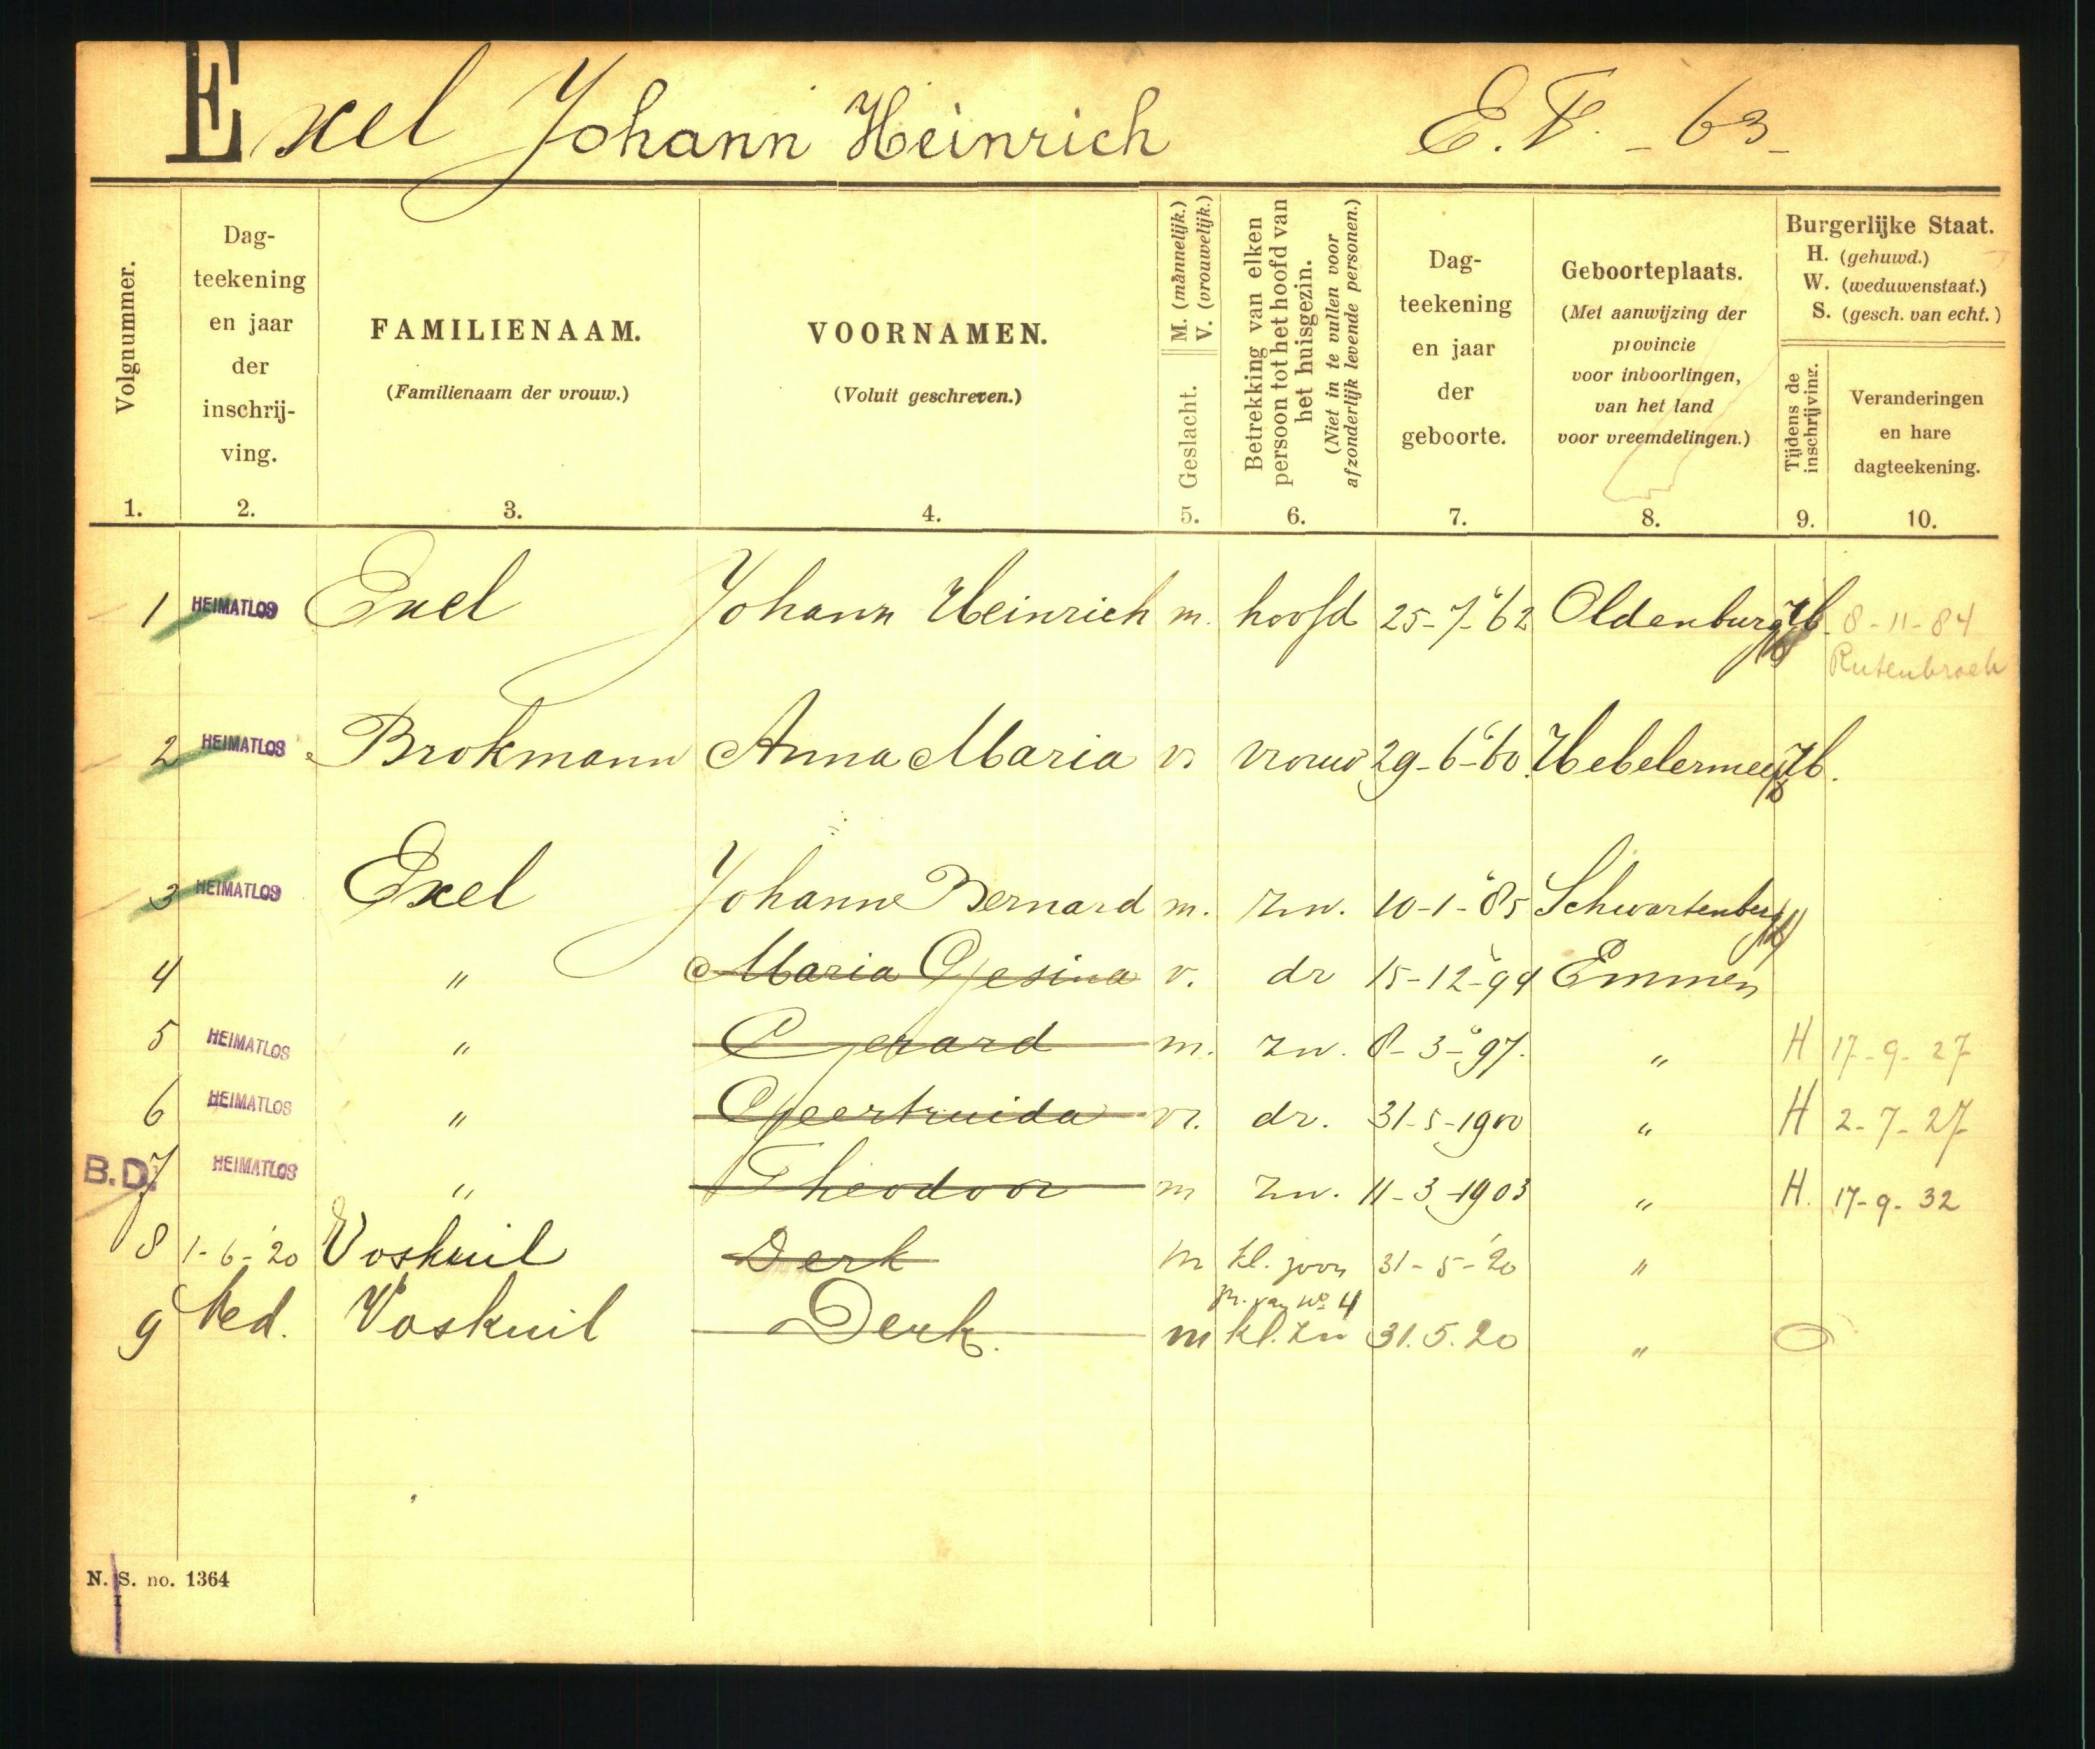 Exel Johann Heinrich E.V. - 63 -
Volgnummer.
1.
Dag-
teekening
en jaar
der
inschrij-
ving.
2.
FAMILIENAAM.
(Familienaam der vrouw.)
3.
VOORNAMEN.
(Voluit geschreven.)
4.
M. (mannelijk.)
V. (vrouwelijk.)
Geslacht.
5.
Betrekking van elken
persoon tot het hoofd van
het huisgezin.
(Niet in te vullen voor
afzonderlijk levende personen.)
6.
Dag-
teekening
en jaar
der
geboorte.
7.
Geboorteplaats.
(Met aanwijzing der
provincie
voor inboorlingen,
van het land
voor vreemdelingen.)
8.
Burgerlijke Staat.
H. (gehuwd.)
W. (weduwenstaat.)
S. (gesch. van echt.)
Tijdens de
inschrijving.
9.
Veranderingen
en hare
dagteekening.
10.
1 HEIMATLOS Exel Johann Heinrich m. hoofd 25-7-'62 Oldenburg H. 8-11-84
Rutenbroek
2 HEIMATLOS Brokmann Anna Maria v. vrouw 29-6-'60 Hebelermeer H.
3 HEIMATLOS Exel Johann Bernard m. zn. 10-1-'85 Schwartenberg
4 " Maria Gesina v. dr 15-12-'94 Emmen
5 HEIMATLOS " Gerard m. zn. 8-3-'97. " H 17-9-27
6 HEIMATLOS " Geertruida vr. dr. 31-5-1900 " H 2-7-27
B.D. 7 HEIMATLOS " Theodoor m zn. 11-3-1903 " H. 17-9-32
8 1-6-'20 Voskuil Derk m kl. zoon 31-5-'20 "
v. van No 4
9 Ned. Voskuil Derk. m kl. zn 31.5.20 "
N. S. no. 1364